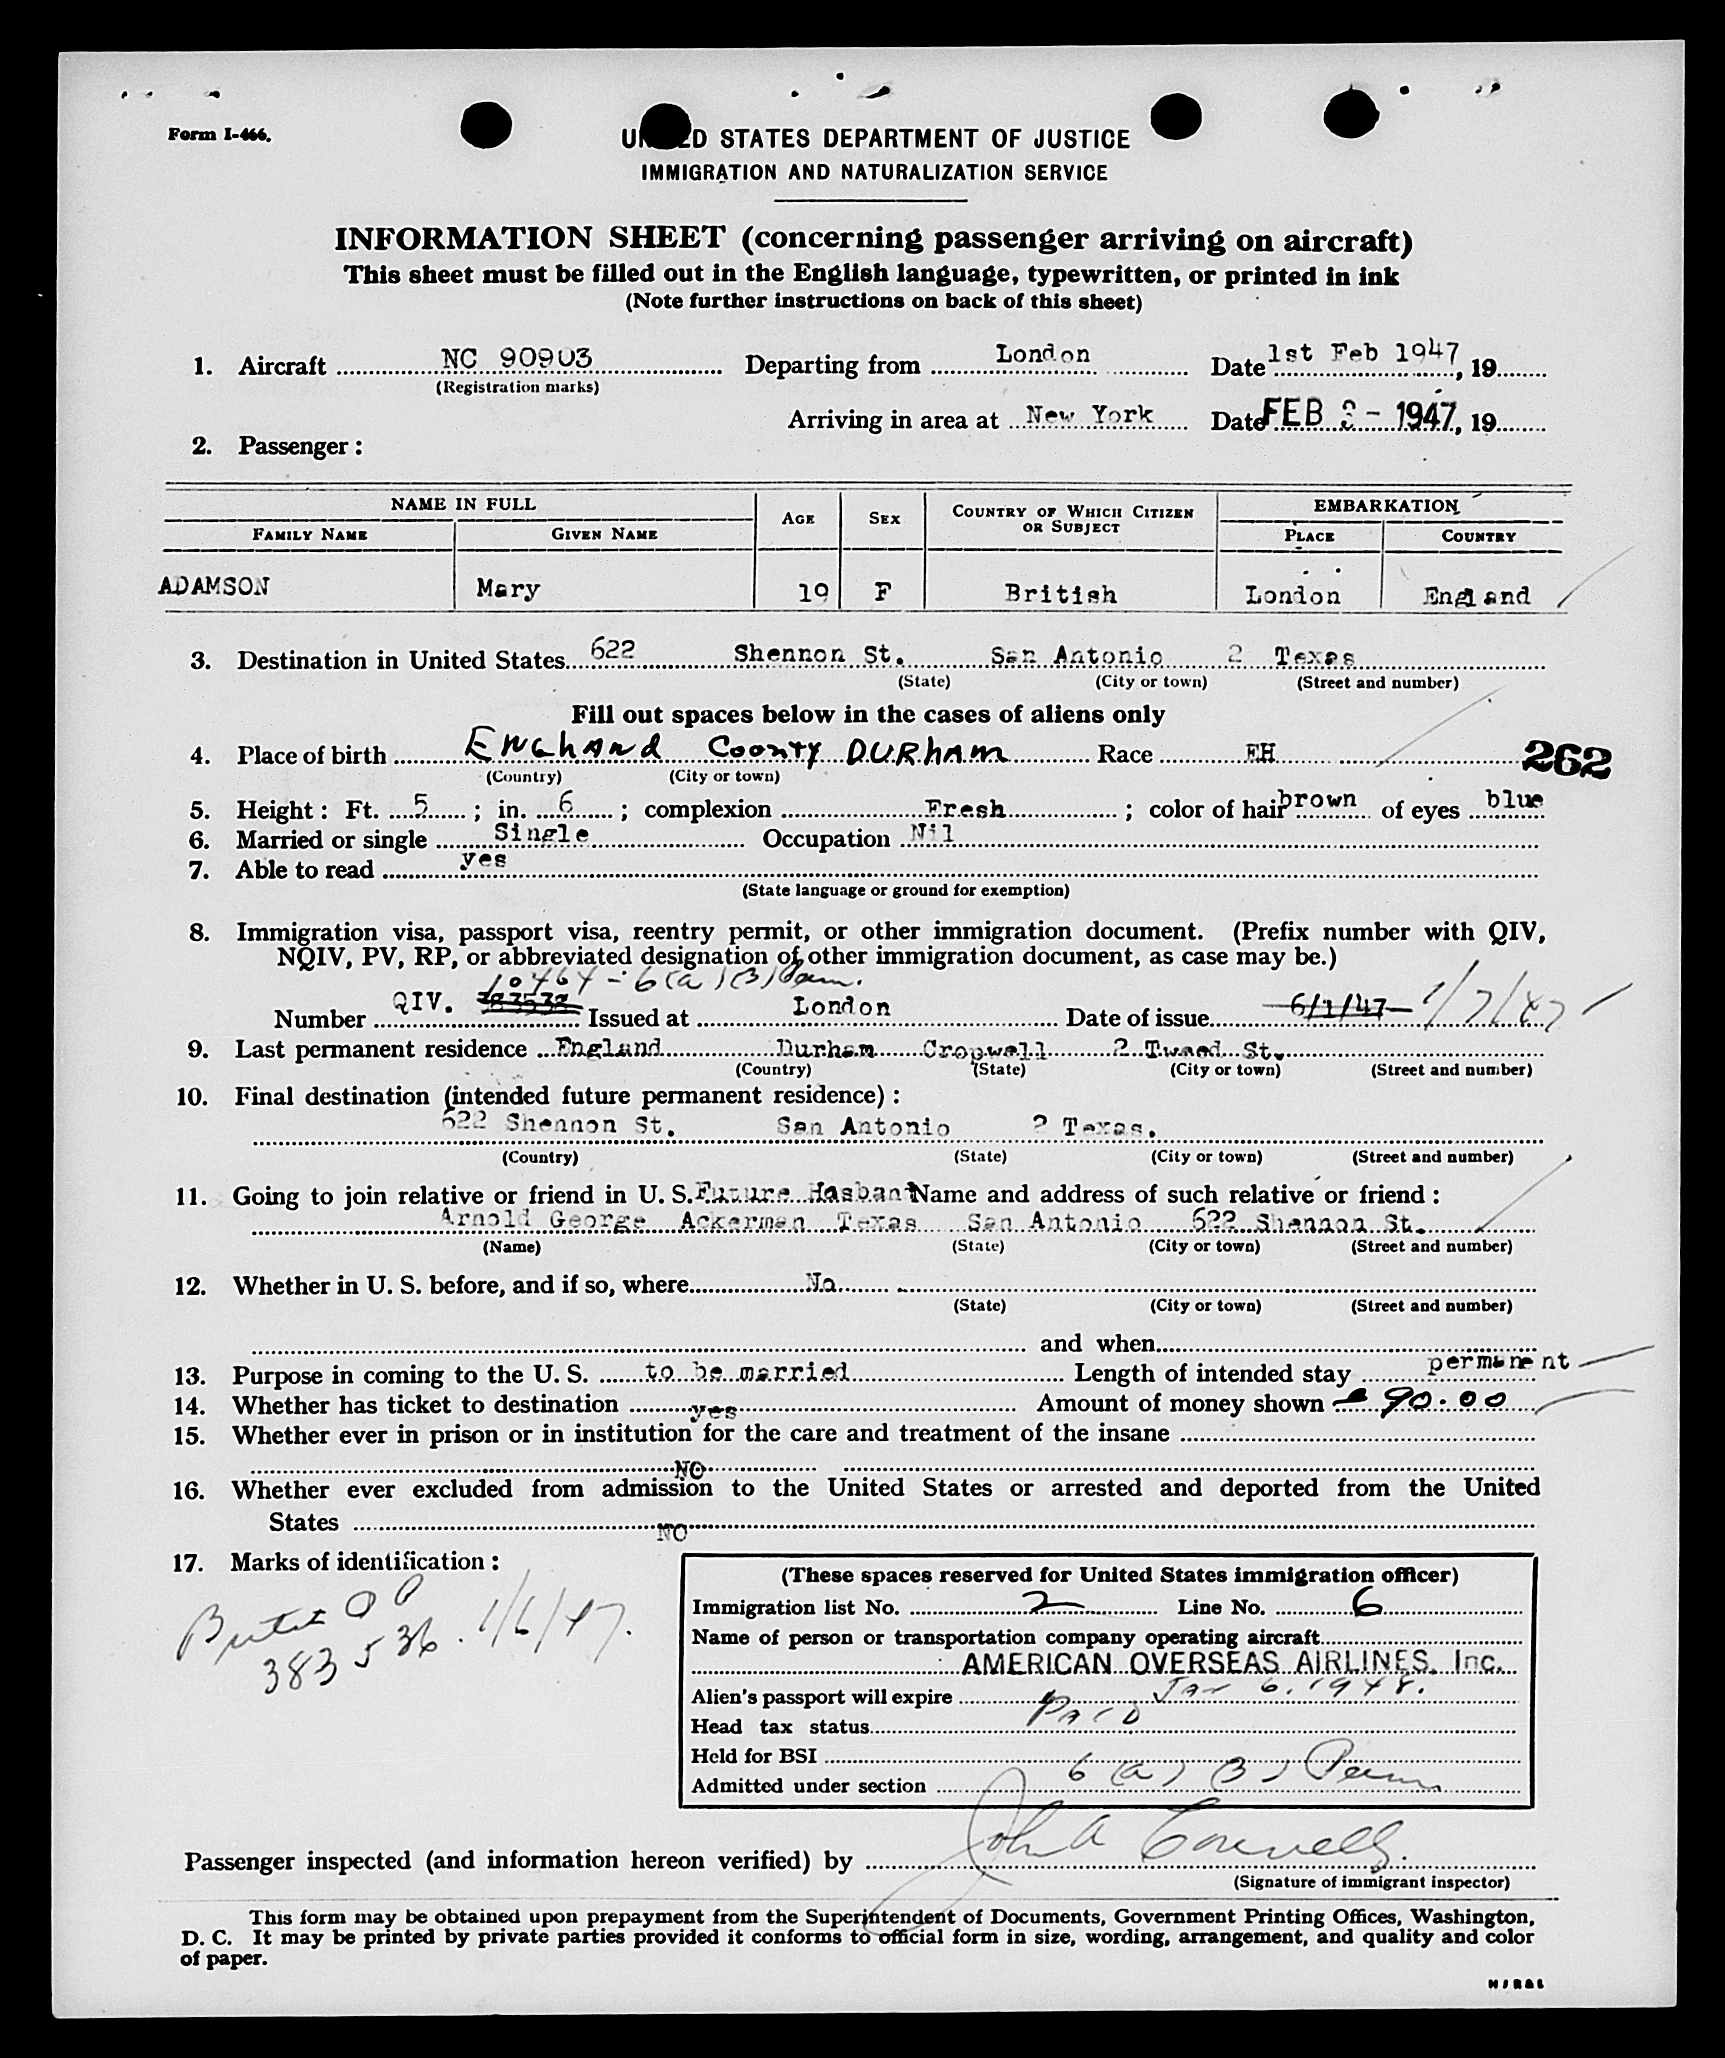 Form I-466.
UNITED STATES DEPARTMENT OF JUSTICE
IMMIGRATION AND NATURALIZATION SERVICE
INFORMATION SHEET (concerning passenger arriving on aircraft)
This sheet must be filled out in the English language, typewritten, or printed in ink
(Note further instructions on back of this sheet)
1. Aircraft NC 90903 Departing from London Date 1st Feb 1947, 19
(Registration marks)
Arriving in area at New York Date FEB 3 - 1947, 19
2. Passenger :
NAME IN FULL AGE SEX COUNTRY OF WHICH CITIZEN OR SUBJECT EMBARKATION
FAMILY NAME GIVEN NAME PLACE COUNTRY
ADAMSON Mary 19 F British London England
3. Destination in United States 622 Shennon St. San Antonio 2 Texas
(State) (City or town) (Street and number)
Fill out spaces below in the cases of aliens only
4. Place of birth ENGLAND COONTY DURHAM Race EH 262
(Country) (City or town)
5. Height : Ft. 5 ; in. 6 ; complexion Fresh ; color of hair brown of eyes blue
6. Married or single Single Occupation Nil
7. Able to read yes
(State language or ground for exemption)
8. Immigration visa, passport visa, reentry permit, or other immigration document. (Prefix number with QIV,
NQIV, PV, RP, or abbreviated designation of other immigration document, as case may be.)
10464 - 6(a)(3) Perm.
Number QIV. 383538 Issued at London Date of issue 6/1/47 1/7/47
9. Last permanent residence England Durham Cropwell 2 Tweed St.
(Country) (State) (City or town) (Street and number)
10. Final destination (intended future permanent residence) :
622 Shennon St. San Antonio 2 Texas.
(Country) (State) (City or town) (Street and number)
11. Going to join relative or friend in U. S. Future Hasband Name and address of such relative or friend :
Arnold George Ackerman Texas San Antonio 622 Shennon St.
(Name) (State) (City or town) (Street and number)
12. Whether in U. S. before, and if so, where No
(State) (City or town) (Street and number)
and when
13. Purpose in coming to the U. S. to be married Length of intended stay permanent
14. Whether has ticket to destination yes Amount of money shown 90.00
15. Whether ever in prison or in institution for the care and treatment of the insane
NO
16. Whether ever excluded from admission to the United States or arrested and deported from the United
States NO
17. Marks of identification :
383536. 1/6/47.
(These spaces reserved for United States immigration officer)
Immigration list No. 2 Line No. 6
Name of person or transportation company operating aircraft
AMERICAN OVERSEAS AIRLINES, Inc.
Alien's passport will expire Jan 6, 1948.
Head tax status PAID
Held for BSI
Admitted under section 6(a)(3) Perm
Passenger inspected (and information hereon verified) by John A Connelly.
(Signature of immigrant inspector)
This form may be obtained upon prepayment from the Superintendent of Documents, Government Printing Offices, Washington,
D. C. It may be printed by private parties provided it conforms to official form in size, wording, arrangement, and quality and color
of paper.